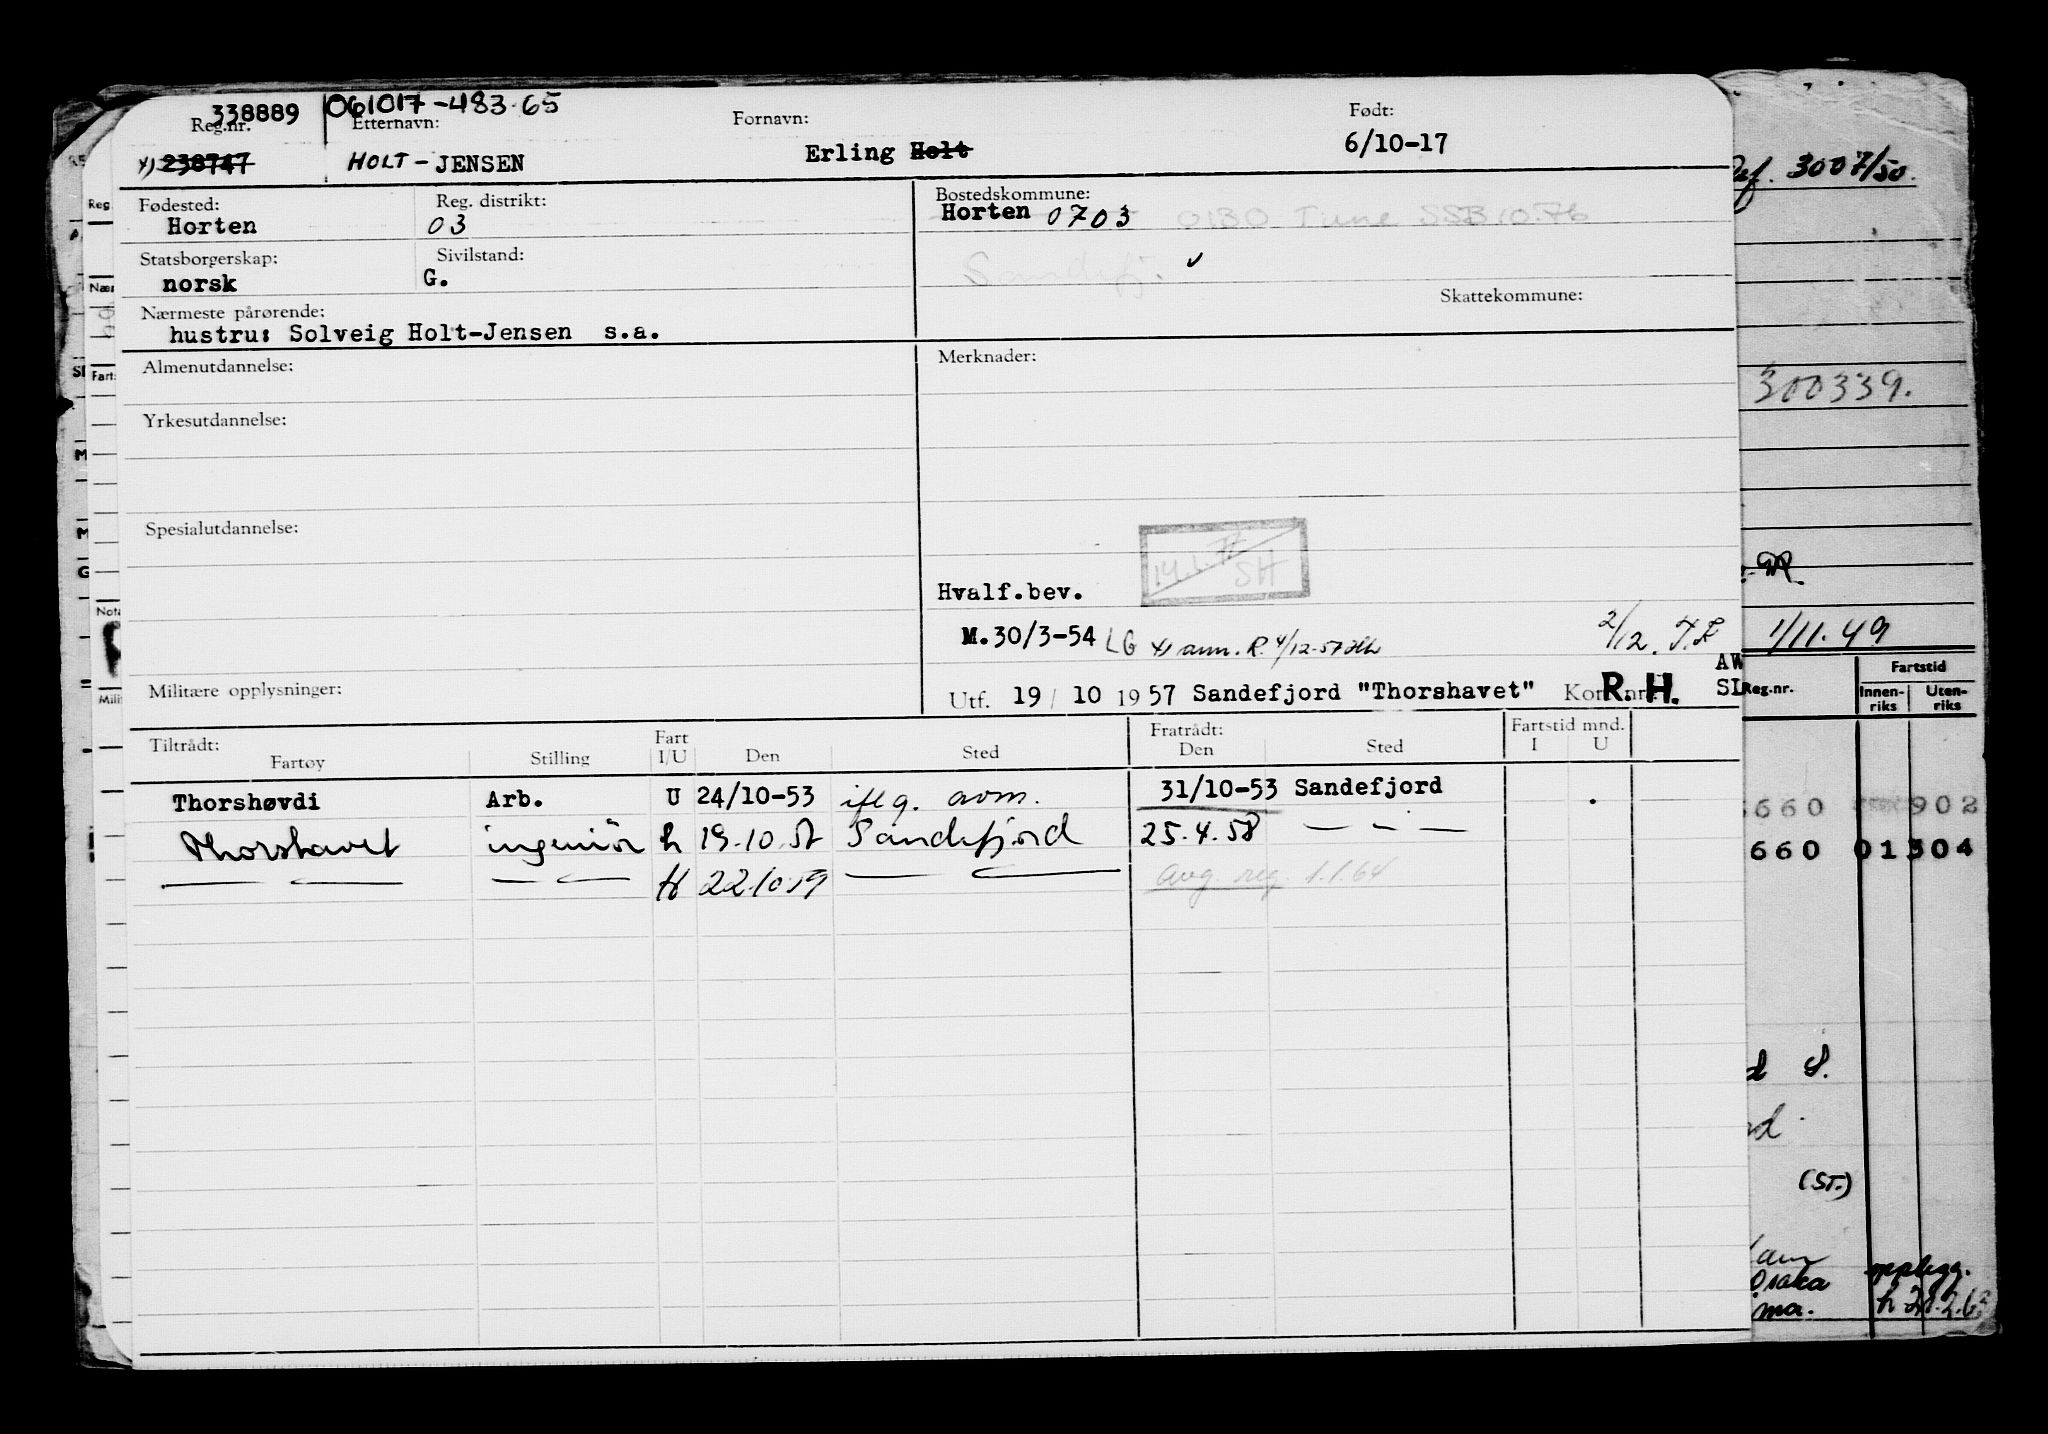 338889 061017-483.65
Reg.nr. Etternavn: Fornavn: Født:
x) 238747 HOLT-JENSEN Erling Holt 6/10-17
Fødested: Reg. distrikt: Bostedskommune:
Horten 03 Horten 0703 0130 Tune SSB 10.76
Statsborgerskap: Sivilstand: Sandefj.
norsk G.
Nærmeste pårørende: Skattekommune:
hustru: Solveig Holt-Jensen s.a.
Almenutdannelse: Merknader:
Yrkesutdannelse:
Spesialutdannelse:
SH
Hvalf.bev.
M.30/3-54 LG x) ann. R. 4/12-57 2/12.
Militære opplysninger: Utf. 19/10 1957 Sandefjord "Thorshavet" R. H.
Tiltrådt: Fart Fratrådt: Fartstid mnd.
Fartøy Stilling I/U Den Sted Den Sted I U
Thorshøvdi Arb. U 24/10-53 iflg. avm. 31/10-53 Sandefjord
Thorshavet ingeniør h 19.10.57 Sandefjord 25.4.58 — - —
— — — — H 22.10.59 — — Avg. reg. 1.1.64
3007/50.
300339.
1/11.49
AW
SL
Fartstid
Reg.nr. Innen-riks Uten-riks
660 902
660 01304
(ST.)
Osaka opplegg.